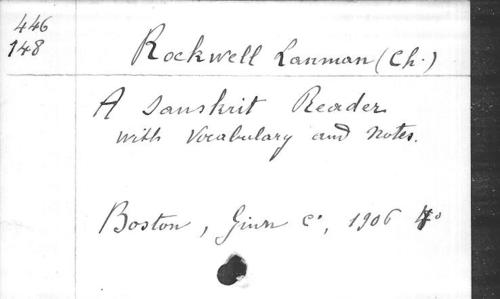 446
148
Rockwell Lanman (Ch.)
A Sanskrit Reader
with Vocabulary and Notes.
Boston, Ginn C°, 1906 4°